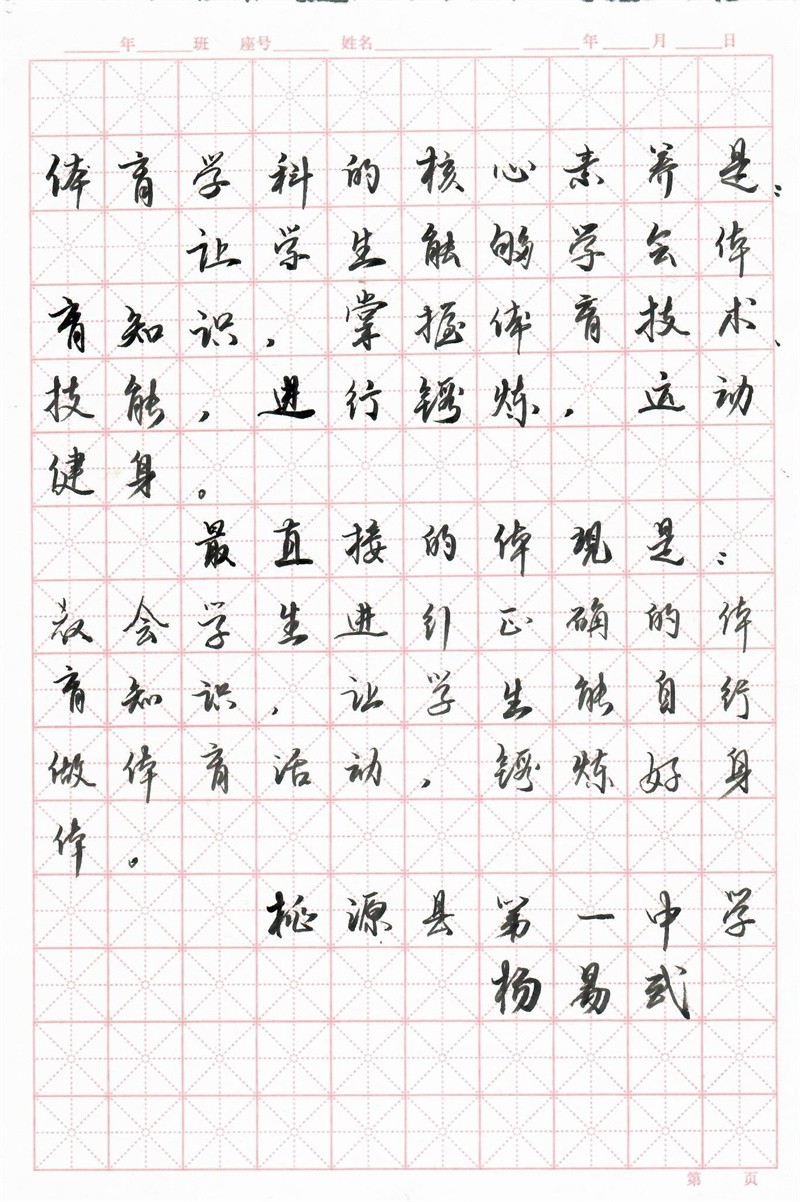 年 班 座号 姓名 年 月 日
体育学科的核心素养是：
让学生能够学会体
育知识，掌握体育技术、
技能，进行锻炼，运动
健身。
最直接的体现是：
教会学生进行正确的体
育知识，让学生能自行
做体育活动，锻炼好身
体。
桃源县第一中学
杨易武
第 页